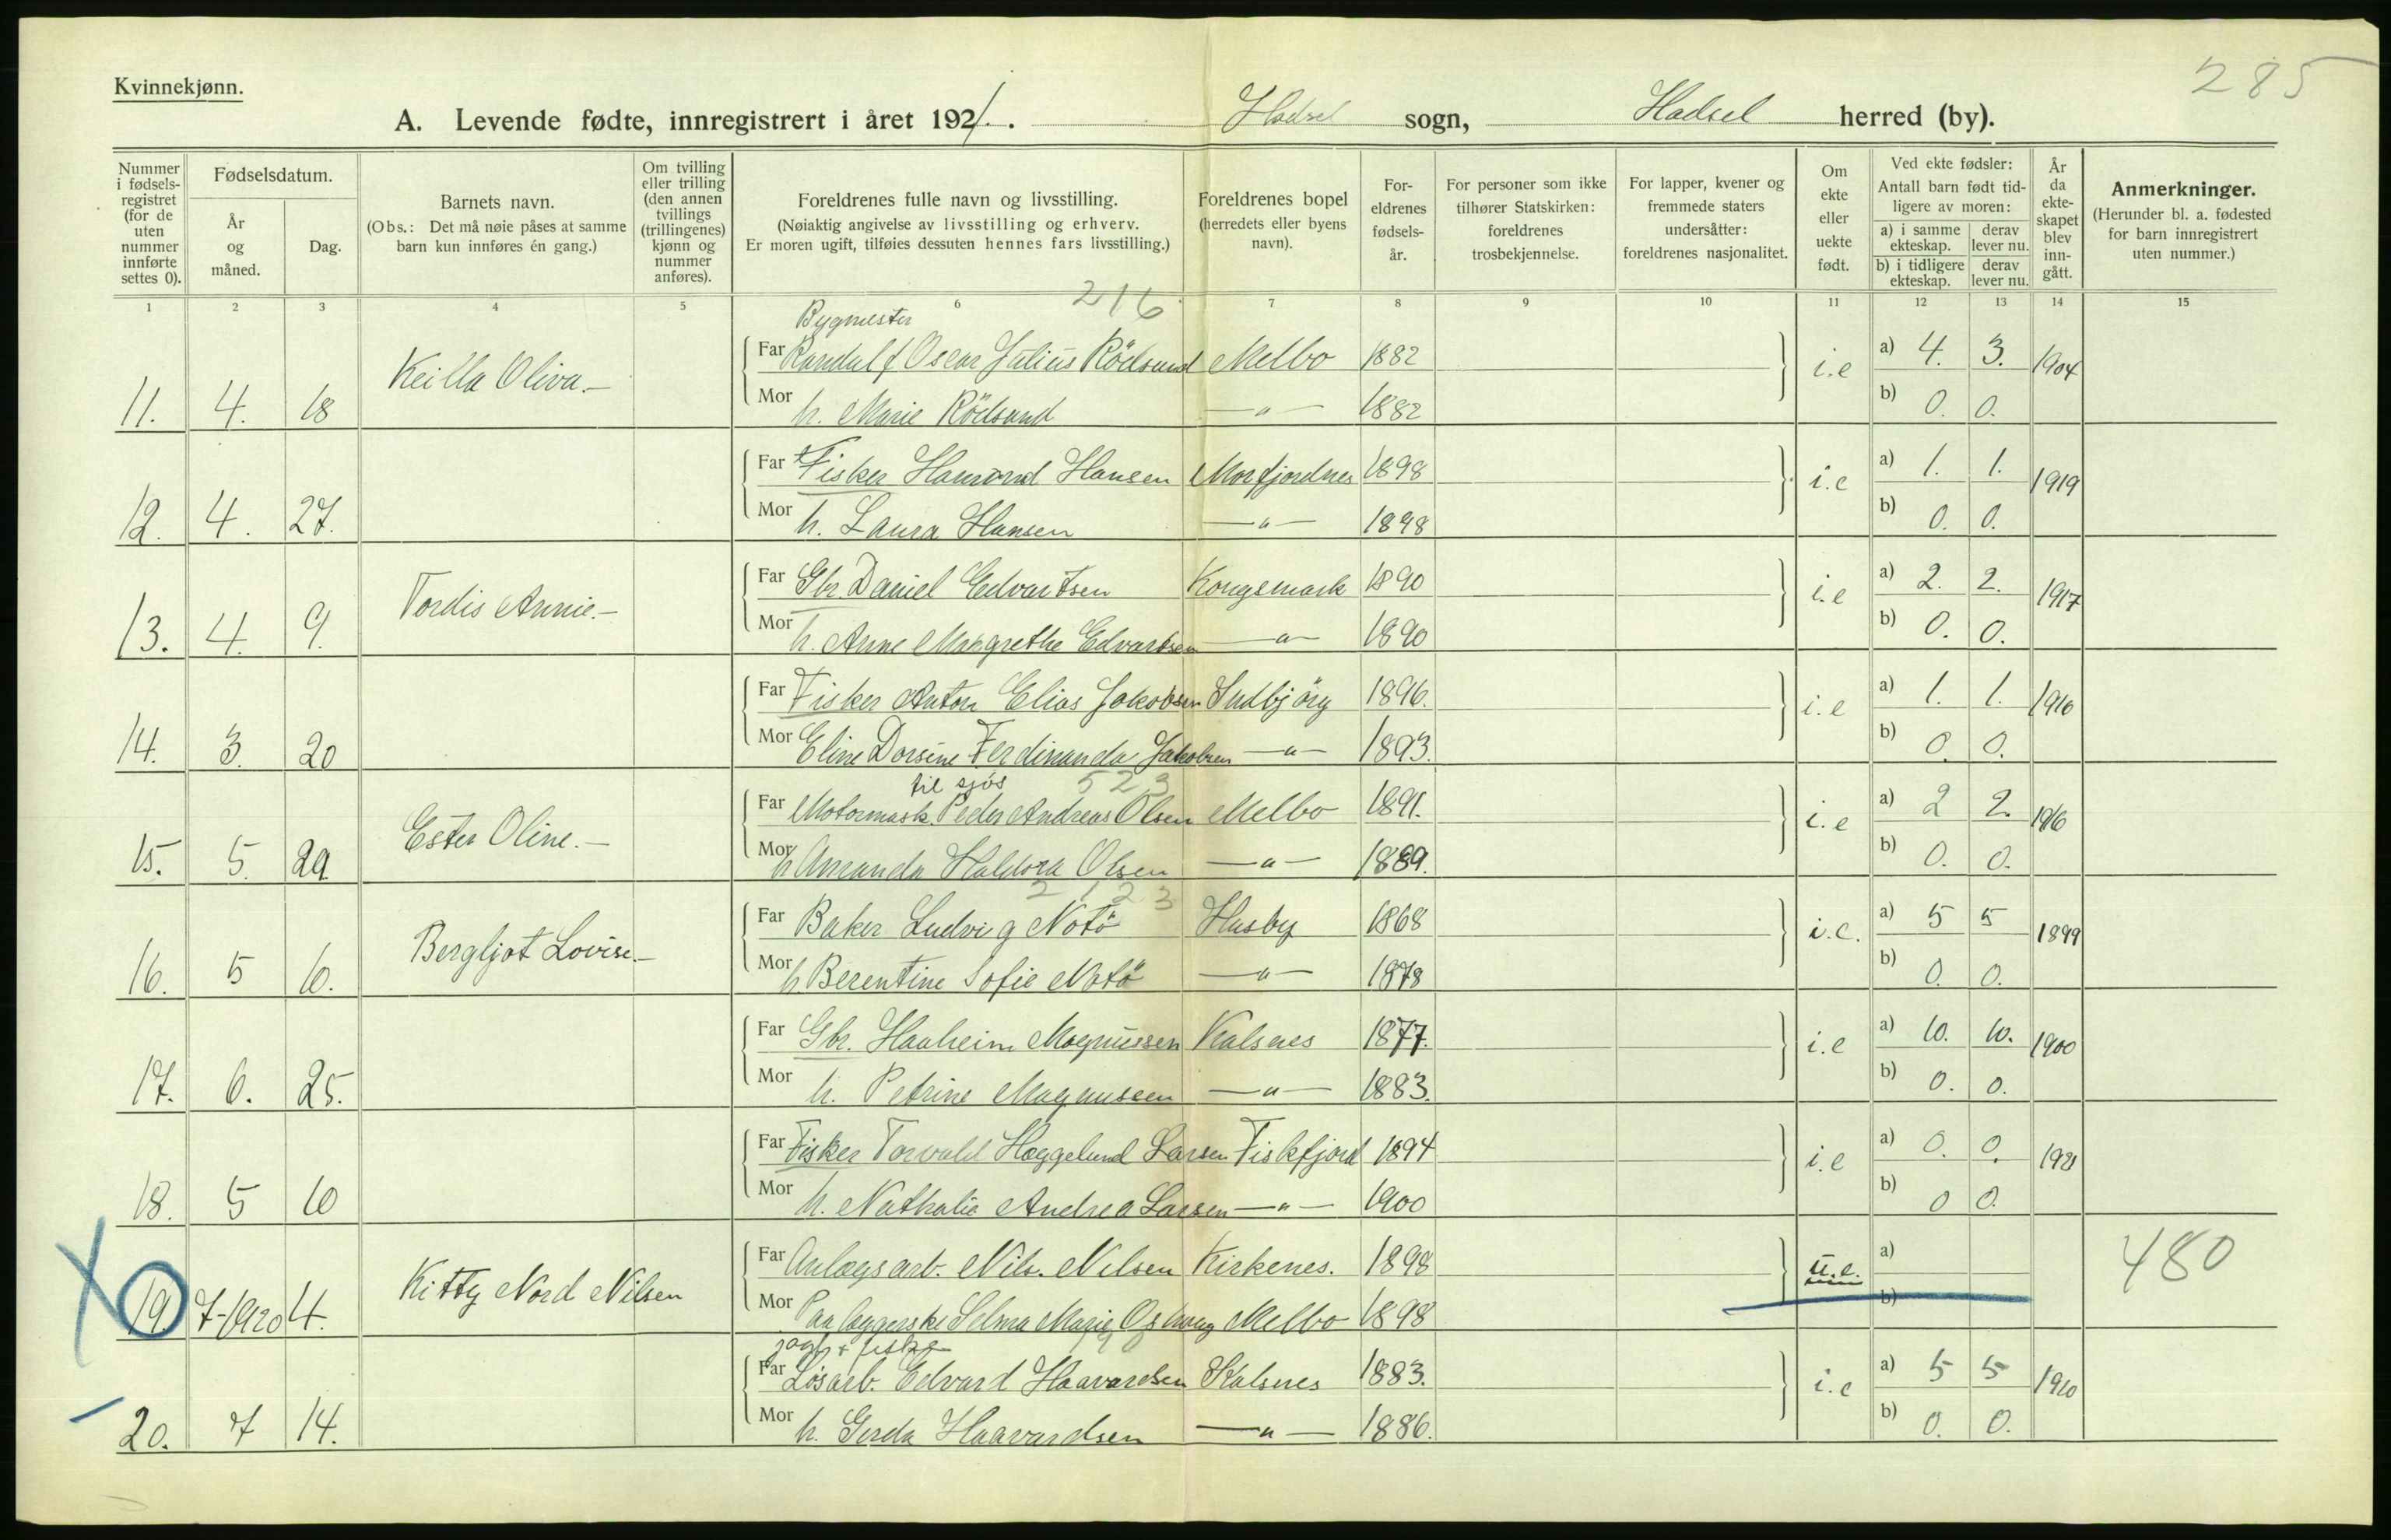 Kvinnekjønn.
285
A. Levende fødte, innregistrert i året 1921. Hadsel sogn, Hadsel herred (by).
Nummer i fødselsregistret (for de uten nummer innførte settes 0).
Fødselsdatum.
År og måned.
Dag.
Barnets navn.
(Obs.: Det må nøie påses at samme barn kun innføres én gang.)
Om tvilling eller trilling (den annen tvillings (trillingenes) kjønn og nummer anføres).
Foreldrenes fulle navn og livsstilling.
(Nøiaktig angivelse av livsstilling og erhverv.
Er moren ugift, tilføies dessuten hennes fars livsstilling.)
Foreldrenes bopel (herredets eller byens navn).
Foreldrenes fødselsår.
For personer som ikke tilhører Statskirken: foreldrenes trosbekjennelse.
For lapper, kvener og fremmede staters undersåtter: foreldrenes nasjonalitet.
Om ekte eller uekte født.
Ved ekte fødsler:
Antall barn født tidligere av moren:
a) i samme ekteskap. derav lever nu.
b) i tidligere ekteskap. derav lever nu.
År da ekteskapet blev inngått.
Anmerkninger.
(Herunder bl. a. fødested for barn innregistrert uten nummer.)
1 2 3 4 5 6 7 8 9 10 11 12 13 14 15
216
Bygmester
11. 4. 18 Keilla Oliva.- Far Randulf Oscar Julius Rödsand Melbo 1882 i.e a) 4. 3. 1904
Mor h. Marie Rödsand —"— 1882 b) 0. 0.
12. 4. 27. Far Fisker Hansen Morfjordnes 1898 i.e a) 1. 1. 1919
Mor h. Laura Hansen —"— 1898 b) 0. 0.
13. 4. 9. Tordis Annie.- Far Gbr. Daniel Edvartsen Kongsmark 1890 i.e a) 2. 2. 1917
Mor h. Anne Margrethe Edvartsen —"— 1890 b) 0. 0.
14. 3. 20 Far Fisker Anton Elias Jakobsen Indbjörg 1896. i.e a) 1. 1. 1916
Mor Eline Dorsine Ferdinanda Jakobsen —"— 1893. b) 0. 0.
til sjøs 523
15. 5. 29 Ester Oline.- Far Motormask. Peder Andreas Olsen Melbo 1891. i.e a) 2 2. 1916
Mor h Amanda Haldora Olsen —"— 1889. b) 0. 0.
2 1 2 3
16. 5 10. Bergljot Lovise.- Far Baker Ludvig Notö Husby 1868 i.e. a) 5 5 1899
Mor h. Berentine Sofie Notö —"— 1878 b) 0. 0.
17. 6. 25. Far Gbr. Haaheim Magnussen Kalsnes 1877. i.e a) 10. 10. 1900
Mor h. Petrine Magnussen —"— 1883. b) 0. 0.
18. 5 10 Far Fisker Torvald Hæggelund Larsen Fiskfjord 1894 i.e a) 0. 0. 1921
Mor h. Nathalie Andrea Larsen —"— 1900 b) 0 0.
19. 7-1920 4. Kitty Nord Nilsen Far Anlægsarb. Nils. Nilsen Kirkenes. 1898 u.e. a) 480
Mor Selma Marie Melbo 1898 b)
jagt & fiske
20. 7 14. Far Løsarb. Edvard Haavardsen Kalsnes 1883. i.e a) 5 5 1910
Mor h. Gerda Haavardsen —"— 1886. b) 0. 0.